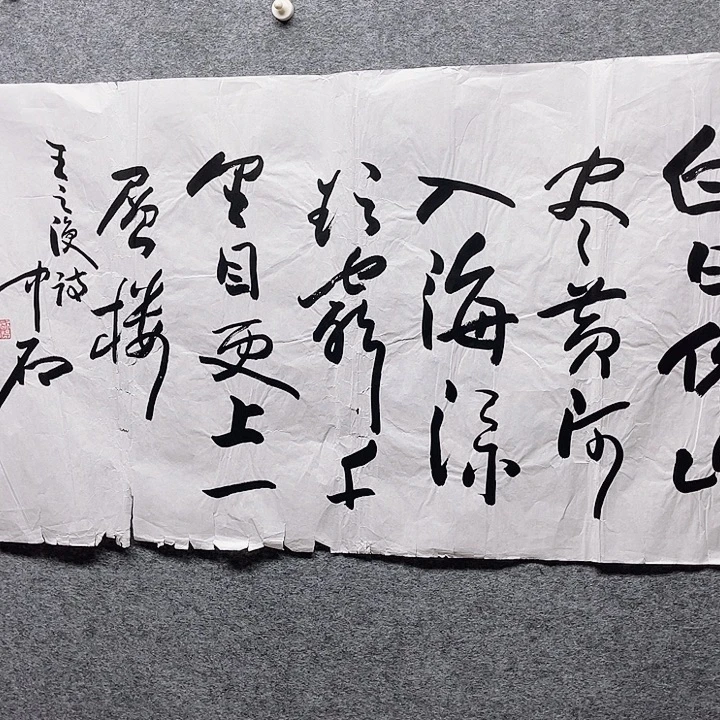 白日依山
尽黄河
入海流
欲窮千
里目更上一
層楼
王之涣诗
中石